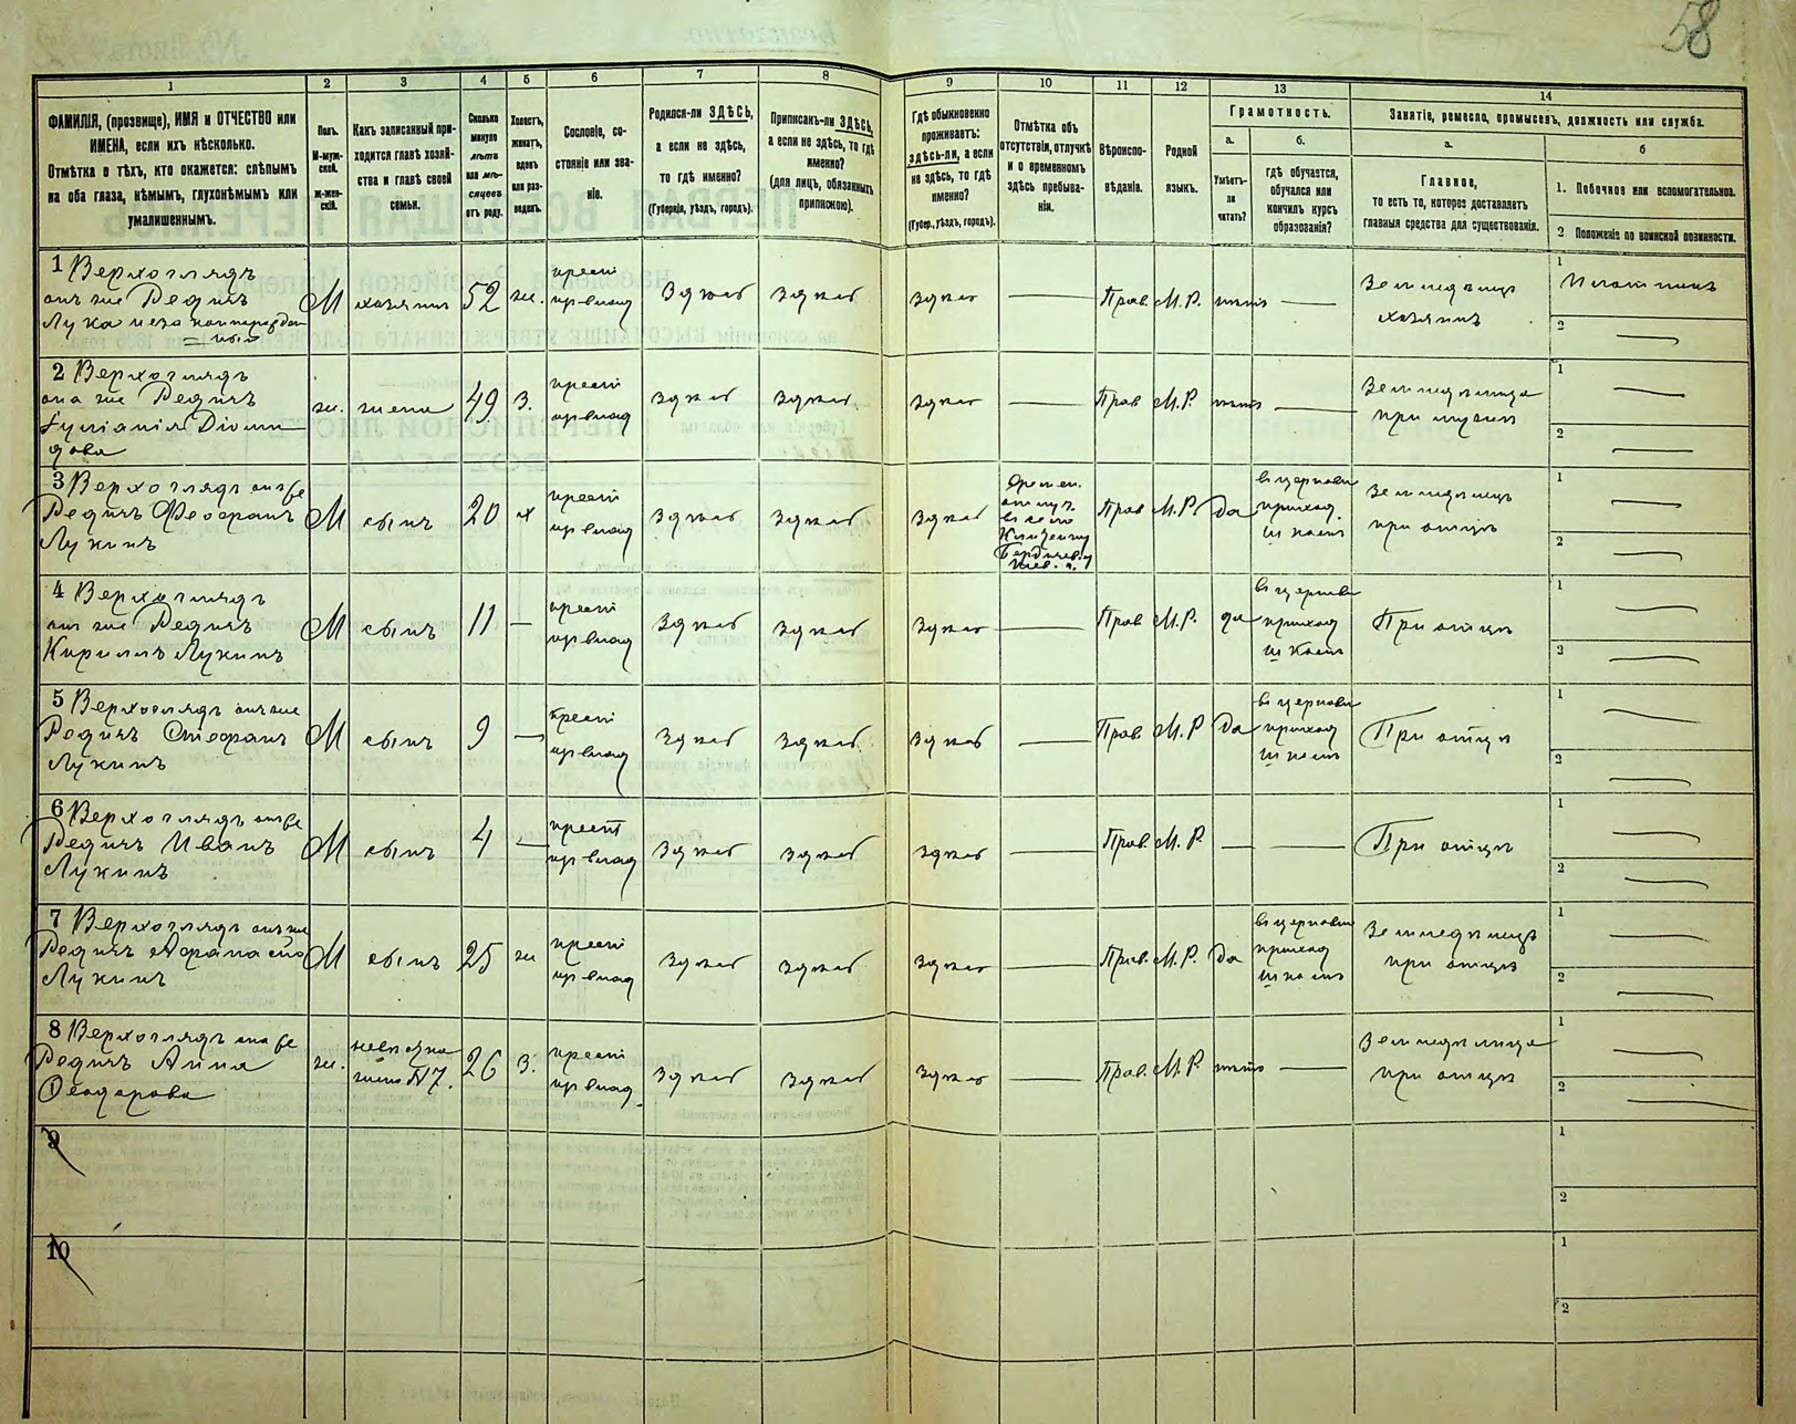 58
1
2
3
4
5
6
7
8
9
10
11
12
13
14
ФАМИЛІЯ, (прозвище), ИМЯ и ОТЧЕСТВО или
ИМЕНА, если ихъ нѣсколько.
Отмѣтка о тѣхъ, кто окажется: слѣпымъ
на оба глаза, нѣмымъ, глухонѣмымъ или
умалишеннымъ.
Полъ.
М-муж-
ской.
Ж-жен-
скій.
Какъ записанный при-
ходится главѣ хозяй-
ства и главѣ своей
семьи.
Сколько
минуло
лѣтъ
или мѣ-
сяцевъ
отъ роду.
Холостъ,
женатъ,
вдовъ
или раз-
веденъ.
Сословіе, со-
стояніе или зва-
ніе.
Родился-ли ЗДѢСЬ,
а если не здѣсь,
то гдѣ именно?
(Губернія, уѣздъ, городъ).
Приписанъ-ли ЗДѢСЬ,
а если не здѣсь, то гдѣ
именно?
(для лицъ, обязанныхъ
припискою).
Гдѣ обыкновенно
проживаетъ:
здѣсь-ли, а если
не здѣсь, то гдѣ
именно?
(Губер., уѣздъ, городъ).
Отмѣтка объ
отсутствіи, отлучкѣ
и о временномъ
здѣсь пребыва-
ніи.
Вѣроиспо-
вѣданіе.
Родной
языкъ.
Грамотность.
а.
Умѣетъ-
ли
читать?
б.
гдѣ обучается,
обучался или
кончилъ курсъ
образованія?
Занятіе, ремесло, промыселъ, должность или служба.
а.
Главное,
то есть то, которое доставляетъ
главныя средства для существованія.
б
1. Побочное или вспомогательное.
2 Положеніе по воинской повинности.
1 Верхоглядъ
онъ же Редичъ
Лука
М
хозяинъ
52
ж.
крест
изъ владѣ
Здѣсь
Здѣсь
здѣсь
—
Прав.
М.Р.
нѣтъ
—
Земледѣлецъ
хозяинъ
1
Плотникъ
2
—
2 Верхоглядъ
она же Редичъ
дова
ж.
жена
49
З.
крест
изъ владѣ
Здѣсь
Здѣсь
Здѣсь
—
Прав
М.Р.
нѣтъ
—
Земледѣлица
при мужѣ
1
—
2
—
3 Верхоглядъ онъ же
Редичъ Феофанъ
Лукинъ
М
сынъ
20
х
крест
изъ владѣ
Здѣсь
Здѣсь
Здѣсь
Времен.
отлуч.
въ село
Бердичев. у
Киев. г.
Прав
М.Р.
да
въ церковн
приход.
школѣ
Земледѣлецъ
при отцѣ
1
—
2
—
4 Верхоглядъ
онъ же Редичъ
Кириллъ Лукинъ
М
сынъ
11
—
крест
изъ владѣ
Здѣсь
Здѣсь
Здѣсь
—
Прав
М.Р.
да
въ церковн
приход
школѣ
При отцѣ
1
—
2
—
5 Верхоглядъ онъ же
Редичъ Стефанъ
Лукинъ
М
сынъ
9
—
крест
изъ владѣ
Здѣсь
Здѣсь
Здѣсь
—
Прав.
М.Р
да
въ церковн
приход
школѣ
При отцѣ
1
—
2
—
6 Верхоглядъ онъ же
Редичъ Иванъ
Лукинъ
М
сынъ
4
—
крест
изъ владѣ
Здѣсь
Здѣсь
Здѣсь
—
Прав.
М.Р.
—
—
При отцѣ
1
—
2
—
7 Верхоглядъ онъ же
Редичъ Афанасій
Лукинъ
М
сынъ
25
ж
крест
изъ владѣ
Здѣсь
Здѣсь
Здѣсь
—
Прав.
М.Р.
да
въ церковн
приход
школѣ
Земледѣлецъ
при отцѣ
1
—
2
—
8 Верхоглядъ она же
Редичъ Анна
Феодорова
ж.
невѣстка
жена N7.
26
З.
крест
изъ владѣ
Здѣсь
Здѣсь
Здѣсь
—
Прав.
М.Р.
нѣтъ
—
Земледѣлица
при отцѣ
1
—
2
—
9
1
2
10
1
2